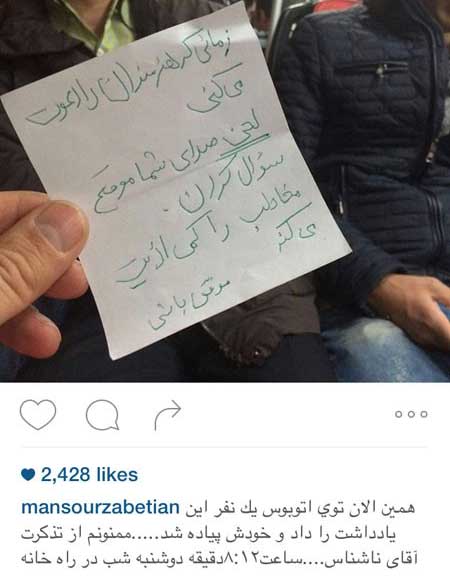 زمانی که هنرمندان را دعوت
می کنی
لحن صدای شما موقع
سؤال کردن.
مخاطب را کمی اذیت
می کند
موفق باشی
2,428 likes
mansourzabetian همین الان توي اتوبوس يك نفر این
یادداشت را داد و خودش پیاده شد.....ممنونم از تذکرت
آقای ناشناس....ساعت۸:۱۲دقیقه دوشنبه شب در راه خانه